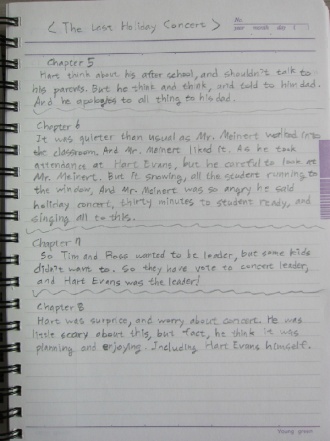 < The Last Holiday Concert >
No.
year month day ( )
Chapter 5
Hart think about his after school, and shouldn't talk to
his parents. But he think and think, and told to him dad.
And he apologies to all thing to his dad.
Chapter 6
It was quieter than usual as Mr. Meinert walked into
the classroom. And Mr. Meinert liked it. As he took
attendance at Hart Evans, but he careful to look at
Mr. Meinert. But it snowing, all the student running to
the window, And Mr. Meinert was so angry he said
holiday concert, thirty minutes to student ready, and
singing all to this.
Chapter 7
So Tim and Ross wanted to be leader, but some kids
didn't want to. So they have vote to concert leader,
and Hart Evans was the leader!
Chapter 8
Hart was surprise, and worry about concert. He was
little scary about this, but fact, he think it was
planning and enjoying. Including Hart Evans himself.
Young green